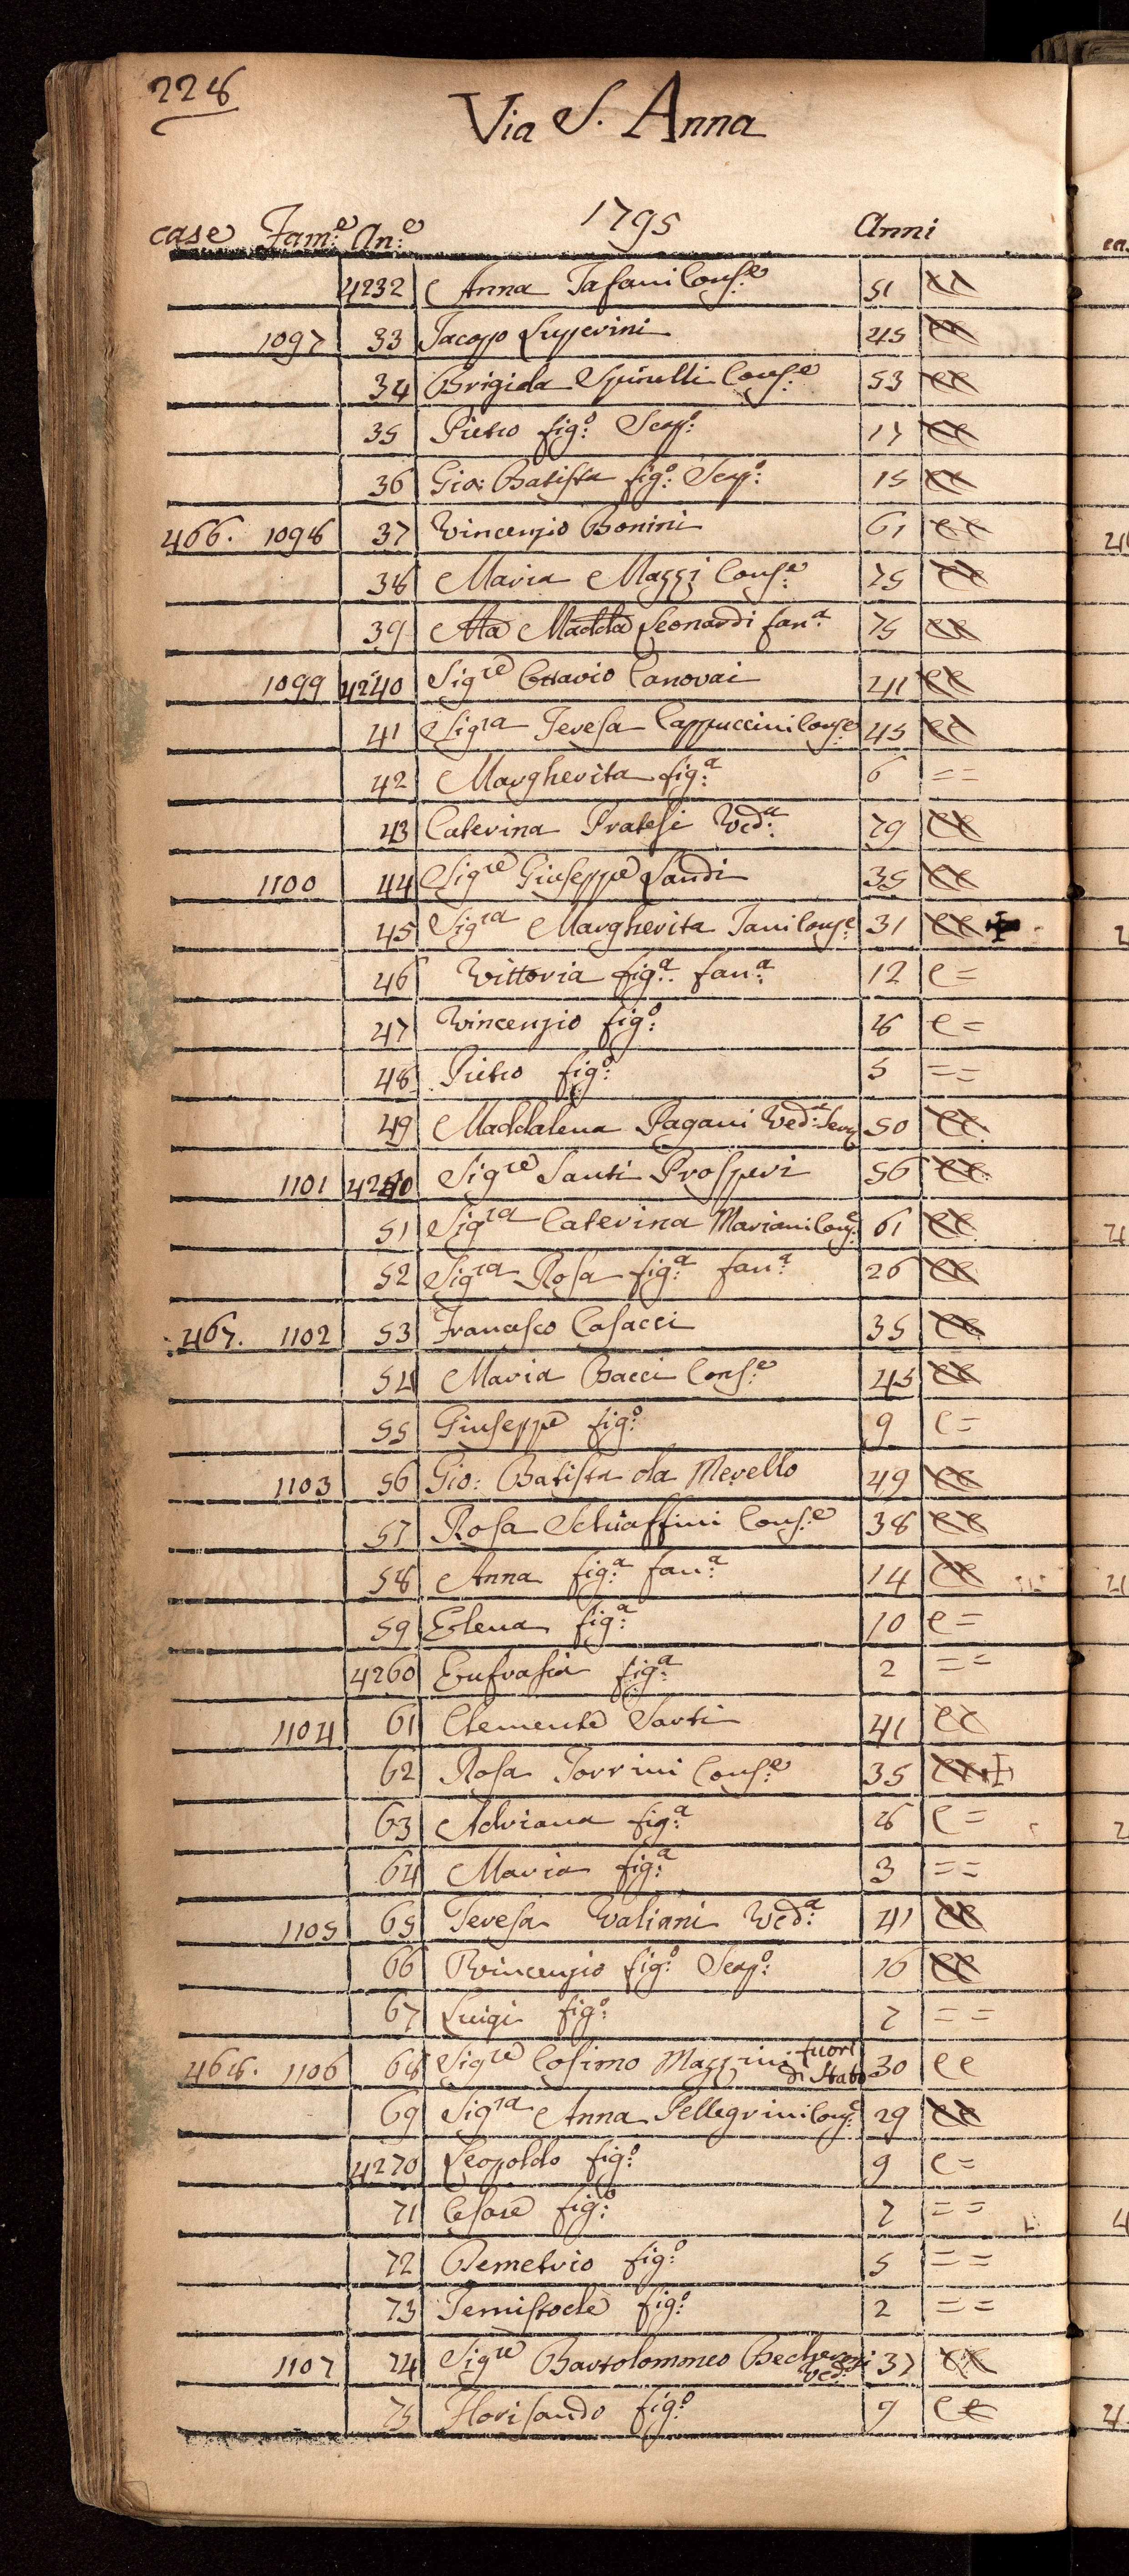 228
Via S. Anna
1795
case Fam:e An:e Anni
4232 Anna Tafani Cons:e 51 ee
1097 33 Jacopo Luperini 45 ee
34 Brigida Spinelli Cons:e 53 ee
35 Pietro fig:o Scap:o 17 ee
36 Gio: Batista fig:o Scap:o 15 ee
466. 1098 37 Vincenzio Bonini 61 ee
38 Maria Mazzi Cons:e 75 ee
39 Ma Madda Leonardi fan:a 75 ee
1099 4240 Sigre Ottavio Canovai 41 ee
41 Sigra Teresa Cappuccini Cons:e 45 ee
42 Margherita fig:a 6 ==
43 Caterina Pratesi Ved:a 79 ee
1100 44 Sigre Giuseppe Landi 35 ee
45 Sigra Margherita Tani Cons:e 31 ee
46 Vittoria fig:a fan:a 12 e=
47 Vincenzio fig:o 8 e=
48 Pietro fig:o 5 ==
49 Maddalena Pagani Ved:a Serv 50 ee
1101 4250 Sigre Santi Prosperi 56 ee
51 Sigra Caterina Mariani Cons:e 61 ee
52 Sigra Rosa fig:a fan:a 26 ee
467. 1102 53 Francesco Casacci 35 ee
54 Maria Bacci Cons:e 45 ee
55 Giuseppe fig:o 9 e=
1103 56 Gio: Batista da Merello 49 ee
57 Rosa Schiaffini Cons:e 38 ee
58 Anna fig:a fan:a 14 ee
59 Elena fig:a 10 e=
4260 Eufrasia fig:a 2 ==
1104 61 Clemente Sarti 41 ee
62 Rosa Torrini Cons:e 35 ee
63 Adriana fig:a 8 e=
64 Maria fig:a 3 ==
1105 65 Teresa Valiani Ved:a 41 ee
66 Vincenzio fig:o Scap:o 16 ee
67 Luigi fig:o 7 ==
468. 1106 68 Sigre Cosimo Mazzini fuori di Stato 30 ee
69 Sigra Anna Pellegrini Cons:e 29 ee
4270 Leopoldo fig:o 9 e=
71 Cesare fig:o 7 ==
72 Demetrio fig:o 5 ==
73 Temistocle fig:o 2 ==
1107 74 Sigre Bartolommeo Ved:o 37 ee
75 Florisando fig:o 9 ee